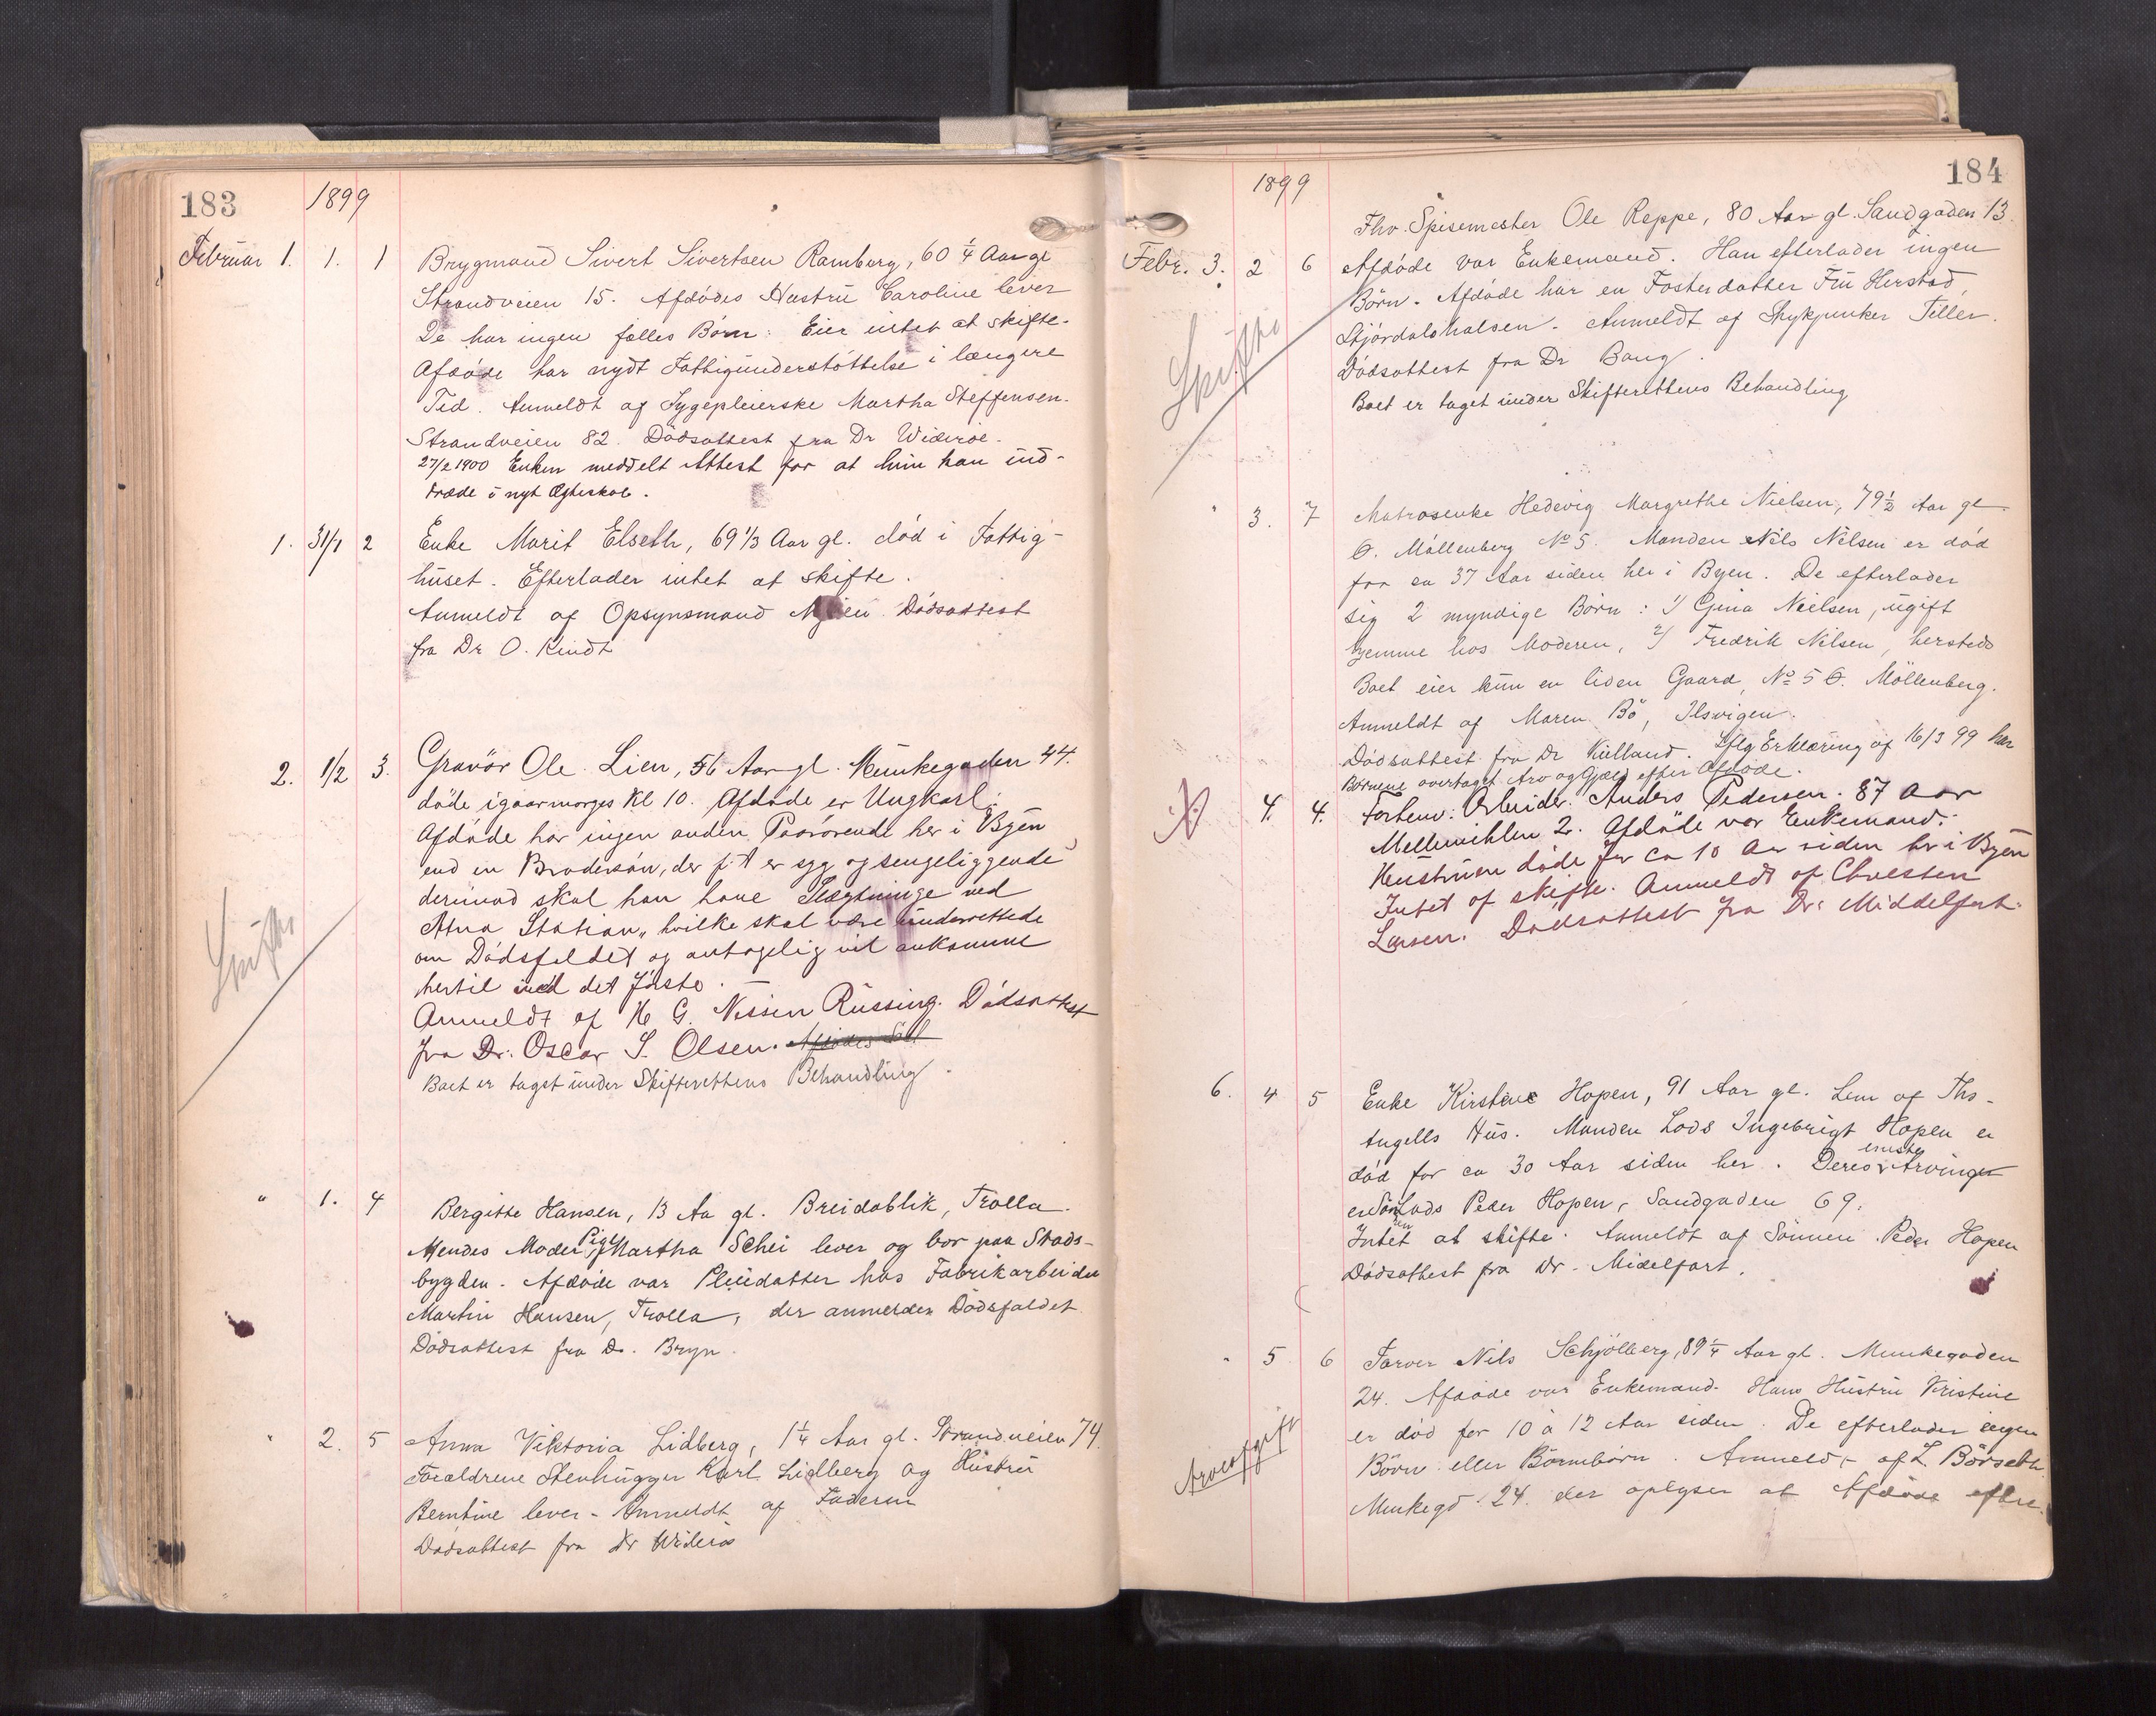 183
1899
Februar 1. 1. 1 Brygmand Sivert Sivertsen Ramberg, 60 1/4 Aar gl
Strandveien 15. Afdødes Hustru Caroline lever
De har ingen fælles Børn. Eier intet at skifte.
Afdøde har nydt Fattigunderstøttelse i længere
Tid. Anmeldt af Sygepleierske Martha Steffensen.
Strandveien 82. Dødsattest fra Dr Widerøe.
27/2 1900 Enken meddelt Attest for at hun kan ind-
træde i nyt Ægteskab.
1. 31/1 2 Enke Marit Elseth, 69 1/3 Aar gl. død i Fattig-
huset. Efterlader intet at skifte.
Anmeldt af Opsynsmand Dødsattest
fra Dr O. Kindt
2. 1/2 3. Gravör Ole Lien, 56 Aar gl. Munkegaden 44.
døde igaarmorges Kl 10. Afdøde er Ungkarl.
Afdøde har ingen anden Paarørende her i Byen
end en Brodersøn, der f.t. er syg og sengeliggende
derimod skal han have Slægtninge ved
Atna Station, hvilke skal være underrettede
om Dødsfaldet og antagelig vil ankomme
hertil med det første.
Anmeldt af H G. Nissen Russing. Dødsattest
fra Dr. Oscar S. Olsen. Afdødes
Boet er taget under Skifterettens Behandling.
Skifte
" 1. 4 Bergitte Hansen, 13 Aa gl. Breidablik, Trolla.
Hendes Moder Pige Martha Schei lever og bor paa Stads-
bygden. Afdøde var Pleiedatter hos Fabrikarbeider
Martin Hansen, Trolla, der anmelder Dødsfaldet
Dødsattest fra Dr. Bryn.
" 2. 5 Anna Viktoria Lidberg, 1 1/4 Aar gl. Strandveien 74.
Forældrene Stenhugger Karl Lidberg og Hustru
Berntine lever - Anmeldt af Faderen
Dødsattest fra Dr Widerøe
184
1899
Thv. Spisemester Ole Reppe, 80 Aar gl. Sandgaden 13.
Febr. 3. 2 6 Afdøde var Enkemand. Han efterlader ingen
Børn. Afdøde har en Fosterdatter Fru Herstad,
Stjørdalshalsen. Anmeldt af Tiller.
Dødsattest fra Dr Bang.
Boet er taget under Skifterettens Behandling
Skifte
" 3. 7 Matrosenke Hedevig Margrethe Nielsen, 79 1/2 Aar gl.
Ø. Møllenberg No 5. Manden Nils Nilsen er død
for ca 37 Aar siden her i Byen. De efterlader
sig 2 myndige Børn: 1/ Gina Nielsen, ugift
hjemme hos Moderen, 2/ Fredrik Nilsen, hersteds
Boet eier kun en liden Gaard, No 5 Ø. Møllenberg.
Anmeldt af Maren Bø, Ilsvigen.
Dødsattest fra Dr Kielland. Iflg Erklæring af 16/3 99 har
Børnene overtaget Arv og Gjæld efter Afdøde.
4. 4. Forhenv. Arbeider. Anders Pedersen. 87 Aar
Mellemihlen 2. Afdøde var Enkemand.
Hustruen døde for ca 10 Aar siden her i Byen
Intet at skifte. Anmeldt af Chresten
Larsen. Dødsattest fra Dr. Middelfart.
6. 4 5 Enke Kirstine Hopen, 91 Aar gl. Lem af Ths.
Angells Hus. Manden Lods Ingebrigt Hopen er
død for ca 30 Aar siden her. Deres eneste Arvinger
er Søn Lods Peder Hopen, Sandgaden 69.
Intet at skifte. Anmeldt af Sønnen Peder Hopen
Dødsattest fra Dr. Midelfart.
" 5 6 Farver Nils Schjølberg, 89 1/4 Aar gl. Munkegaden
24. Afdøde var Enkemand. Hans Hustru Kristine
er død for 10 à 12 Aar siden. De efterlader ingen
Børn eller Børnebørn. Anmeldt af L. Börseth.
Munkegd. 24. der oplyser at Afdøde efter
Arveafgift